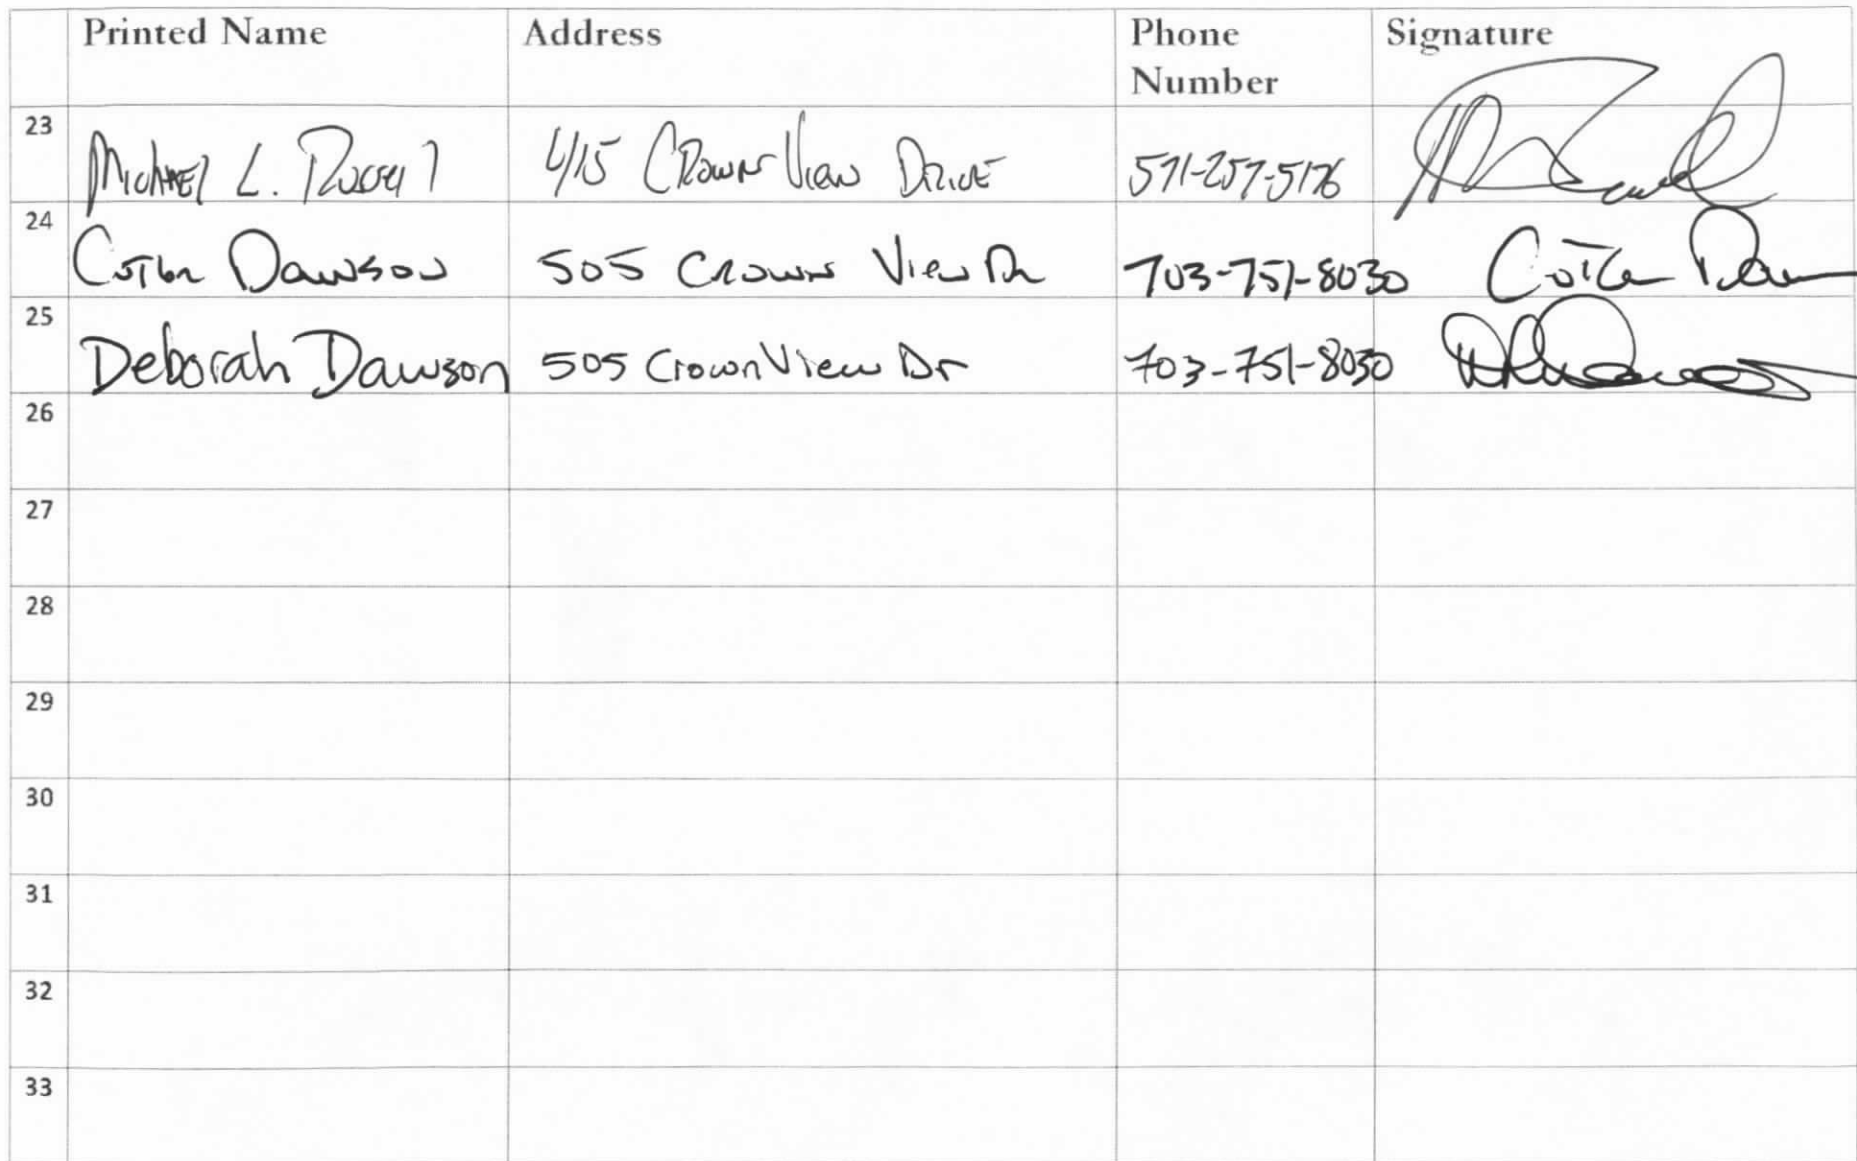 Printed Name Address Phone Number Signature
23 Michael L. 415 Crown View Drive 571-257-5176
24 Dawson 505 Crown View Dr 703-751-8030
25 Deborah Dawson 505 Crown View Dr 703-751-8030
26
27
28
29
30
31
32
33